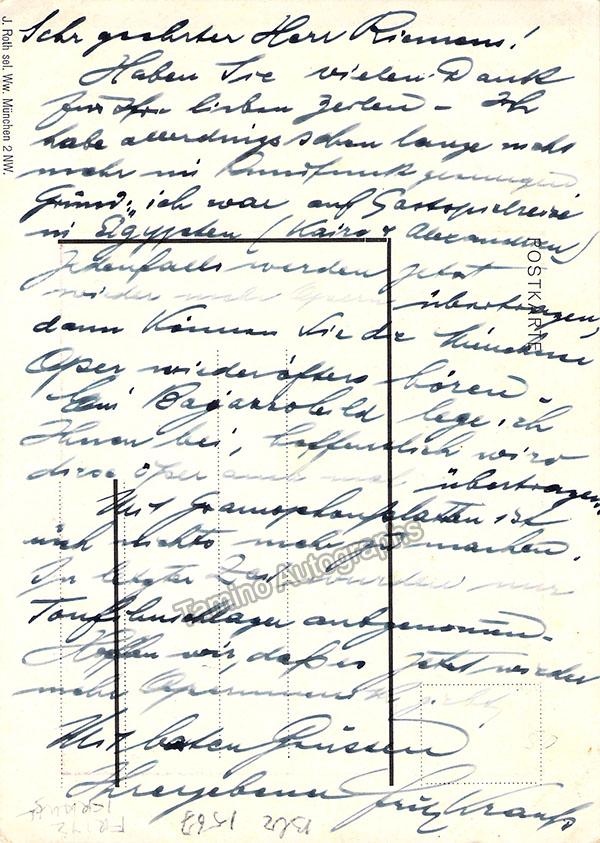 Sehr geehrter Herr Riemens!
Haben Sie vielen Dank
für Ihre lieben Zeilen – Ich
habe allerdings schon lange nicht
mehr im Rundfunk gesungen
Grund: ich war auf Gastspielreise
in Egypten (Kairo & Alexandrien)
Jedenfalls werden jetzt
wieder mehr Opern übertragen,
dann können Sie die Münchner
Oper wieder öfters hören
Ein Bajazzobild lege ich
Ihnen bei, hoffentlich wird
diese Oper auch mal übertragen.
Mit Gramophonplatten ist
auch nichts mehr zu machen.
In letzter Zeit wurden nur
Tonfilmschlager aufgenommen.
Hoffen wir, daß es jetzt wieder
mehr Opernmusik gibt.
Mit besten Grüssen
Ihr ergebener Fritz Krauss
J. Roth sel. Ww. München 2 NW.
POSTKARTE
Tamino Autographs
FRITZ
KRAUSS